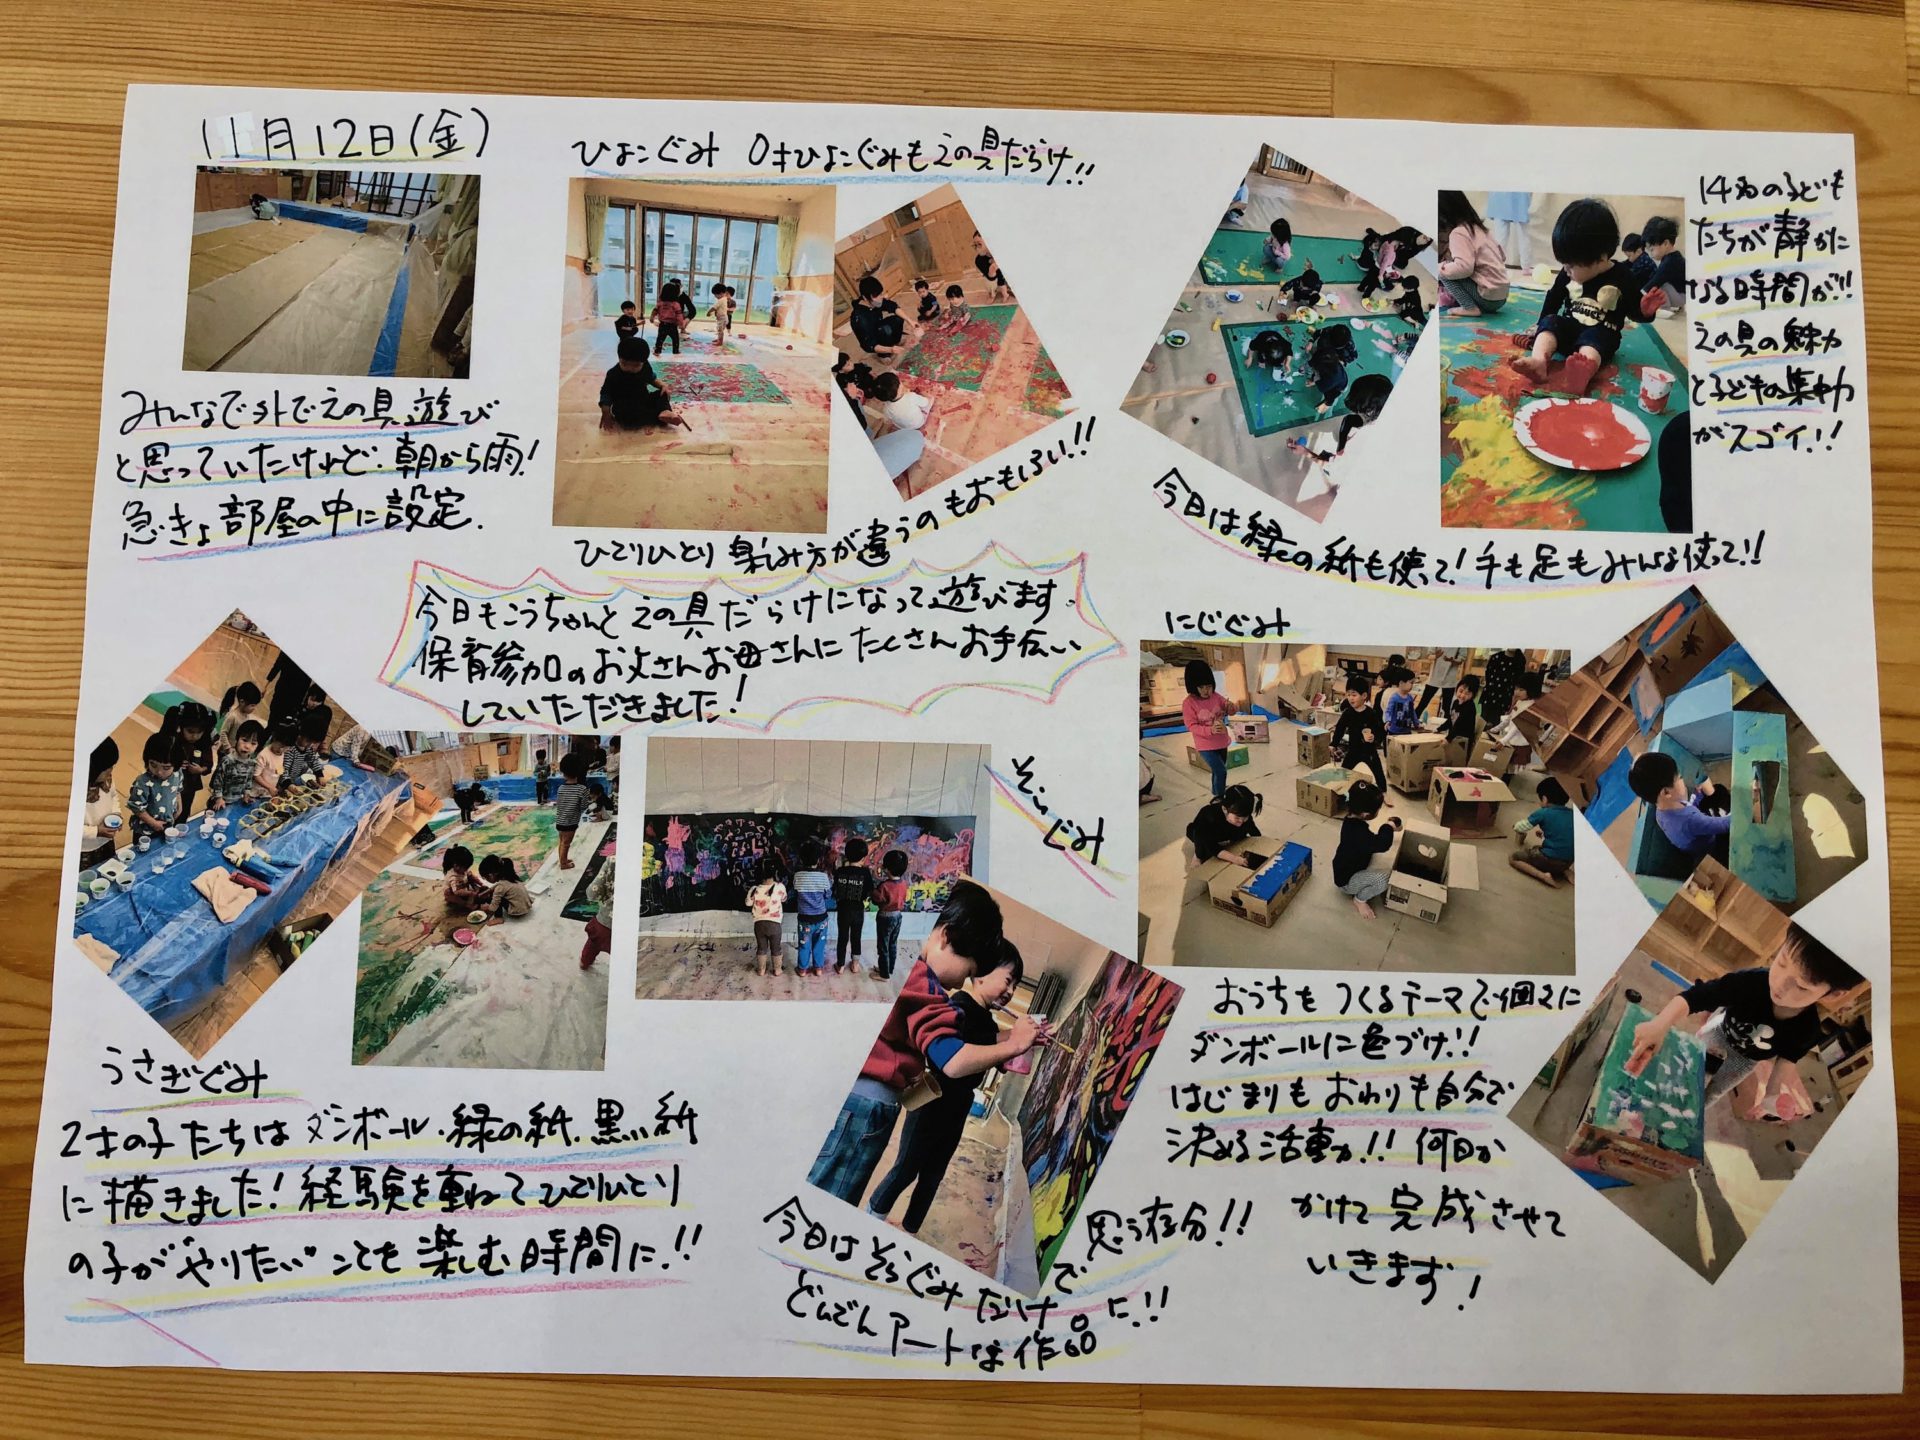 11月12日(金)
みんなで外でえの具遊び
と思っていたけれど、朝から雨!
急きょ部屋の中に設定.
ひよこぐみ 0才ひよこぐみもえの具だらけ!!
ひとりひとり楽しみ方が違うのもおもしろい!!
14名の子ども
たちが静かに
なる時間が!!
えの具の魅力
と子どもの集中力
がスゴイ!!
今日は緑の紙も使って!手も足もみんな使って!!
今日もこうちゃんとえの具だらけになって遊びます.
保育参加のお父さんお母さんにたくさんお手伝い
していただきました!
うさぎぐみ
2才の子たちはダンボール、緑の紙、黒い紙
に描きました!経験を重ねてひとりひとり
の子が"やりたい"ことを楽しむ時間に!!
そらぐみ
NO MILK
今日はそらぐみだけで思う存分!!
どんどんアートな作品に!!
にじぐみ
おうちをつくるテーマで個々に
ダンボールに色づけ!!
はじまりもおわりも自分で
決める活動!! 何日か
かけて完成させて
いきます!